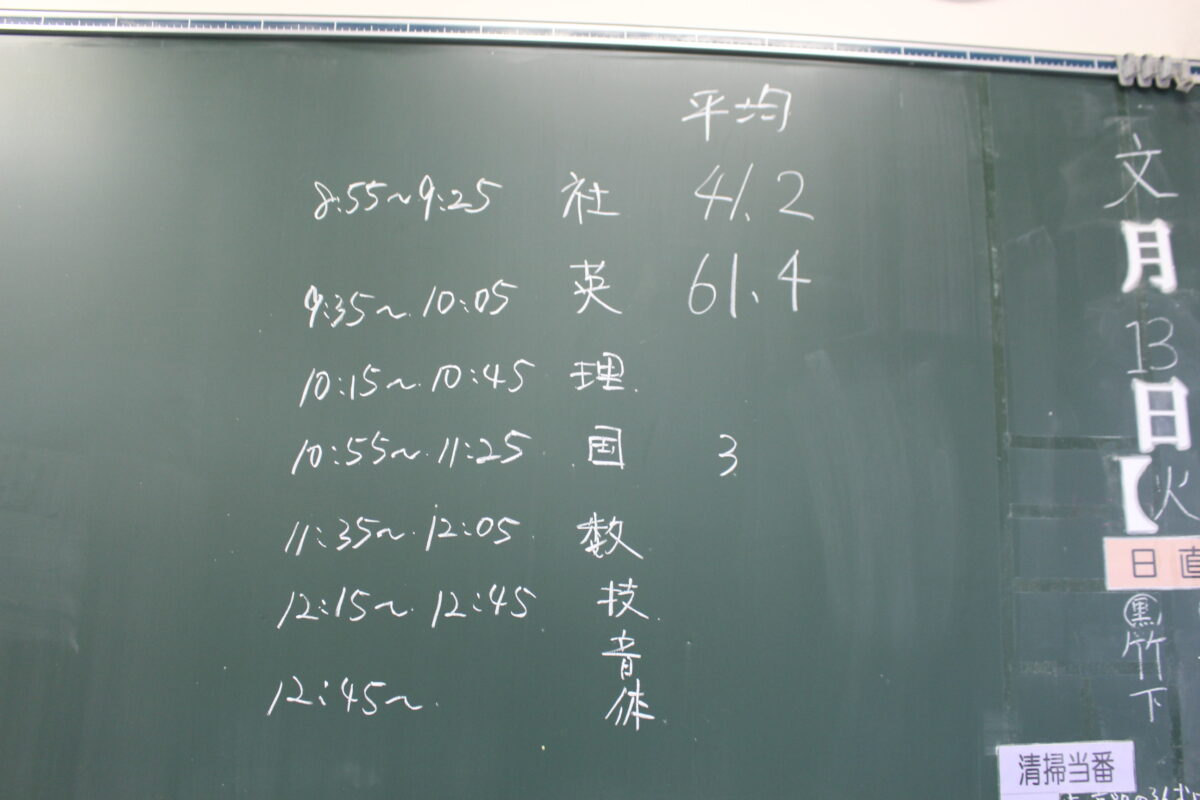 平均
8:55〜9:25 社 41.2
9:35〜10:05 英 61.4
10:15〜10:45 理
10:55〜11:25 国 3
11:35〜12:05 数
12:15〜12:45 技
音
12:45〜 体
文月13日【火
日直
黒竹下
清掃当番